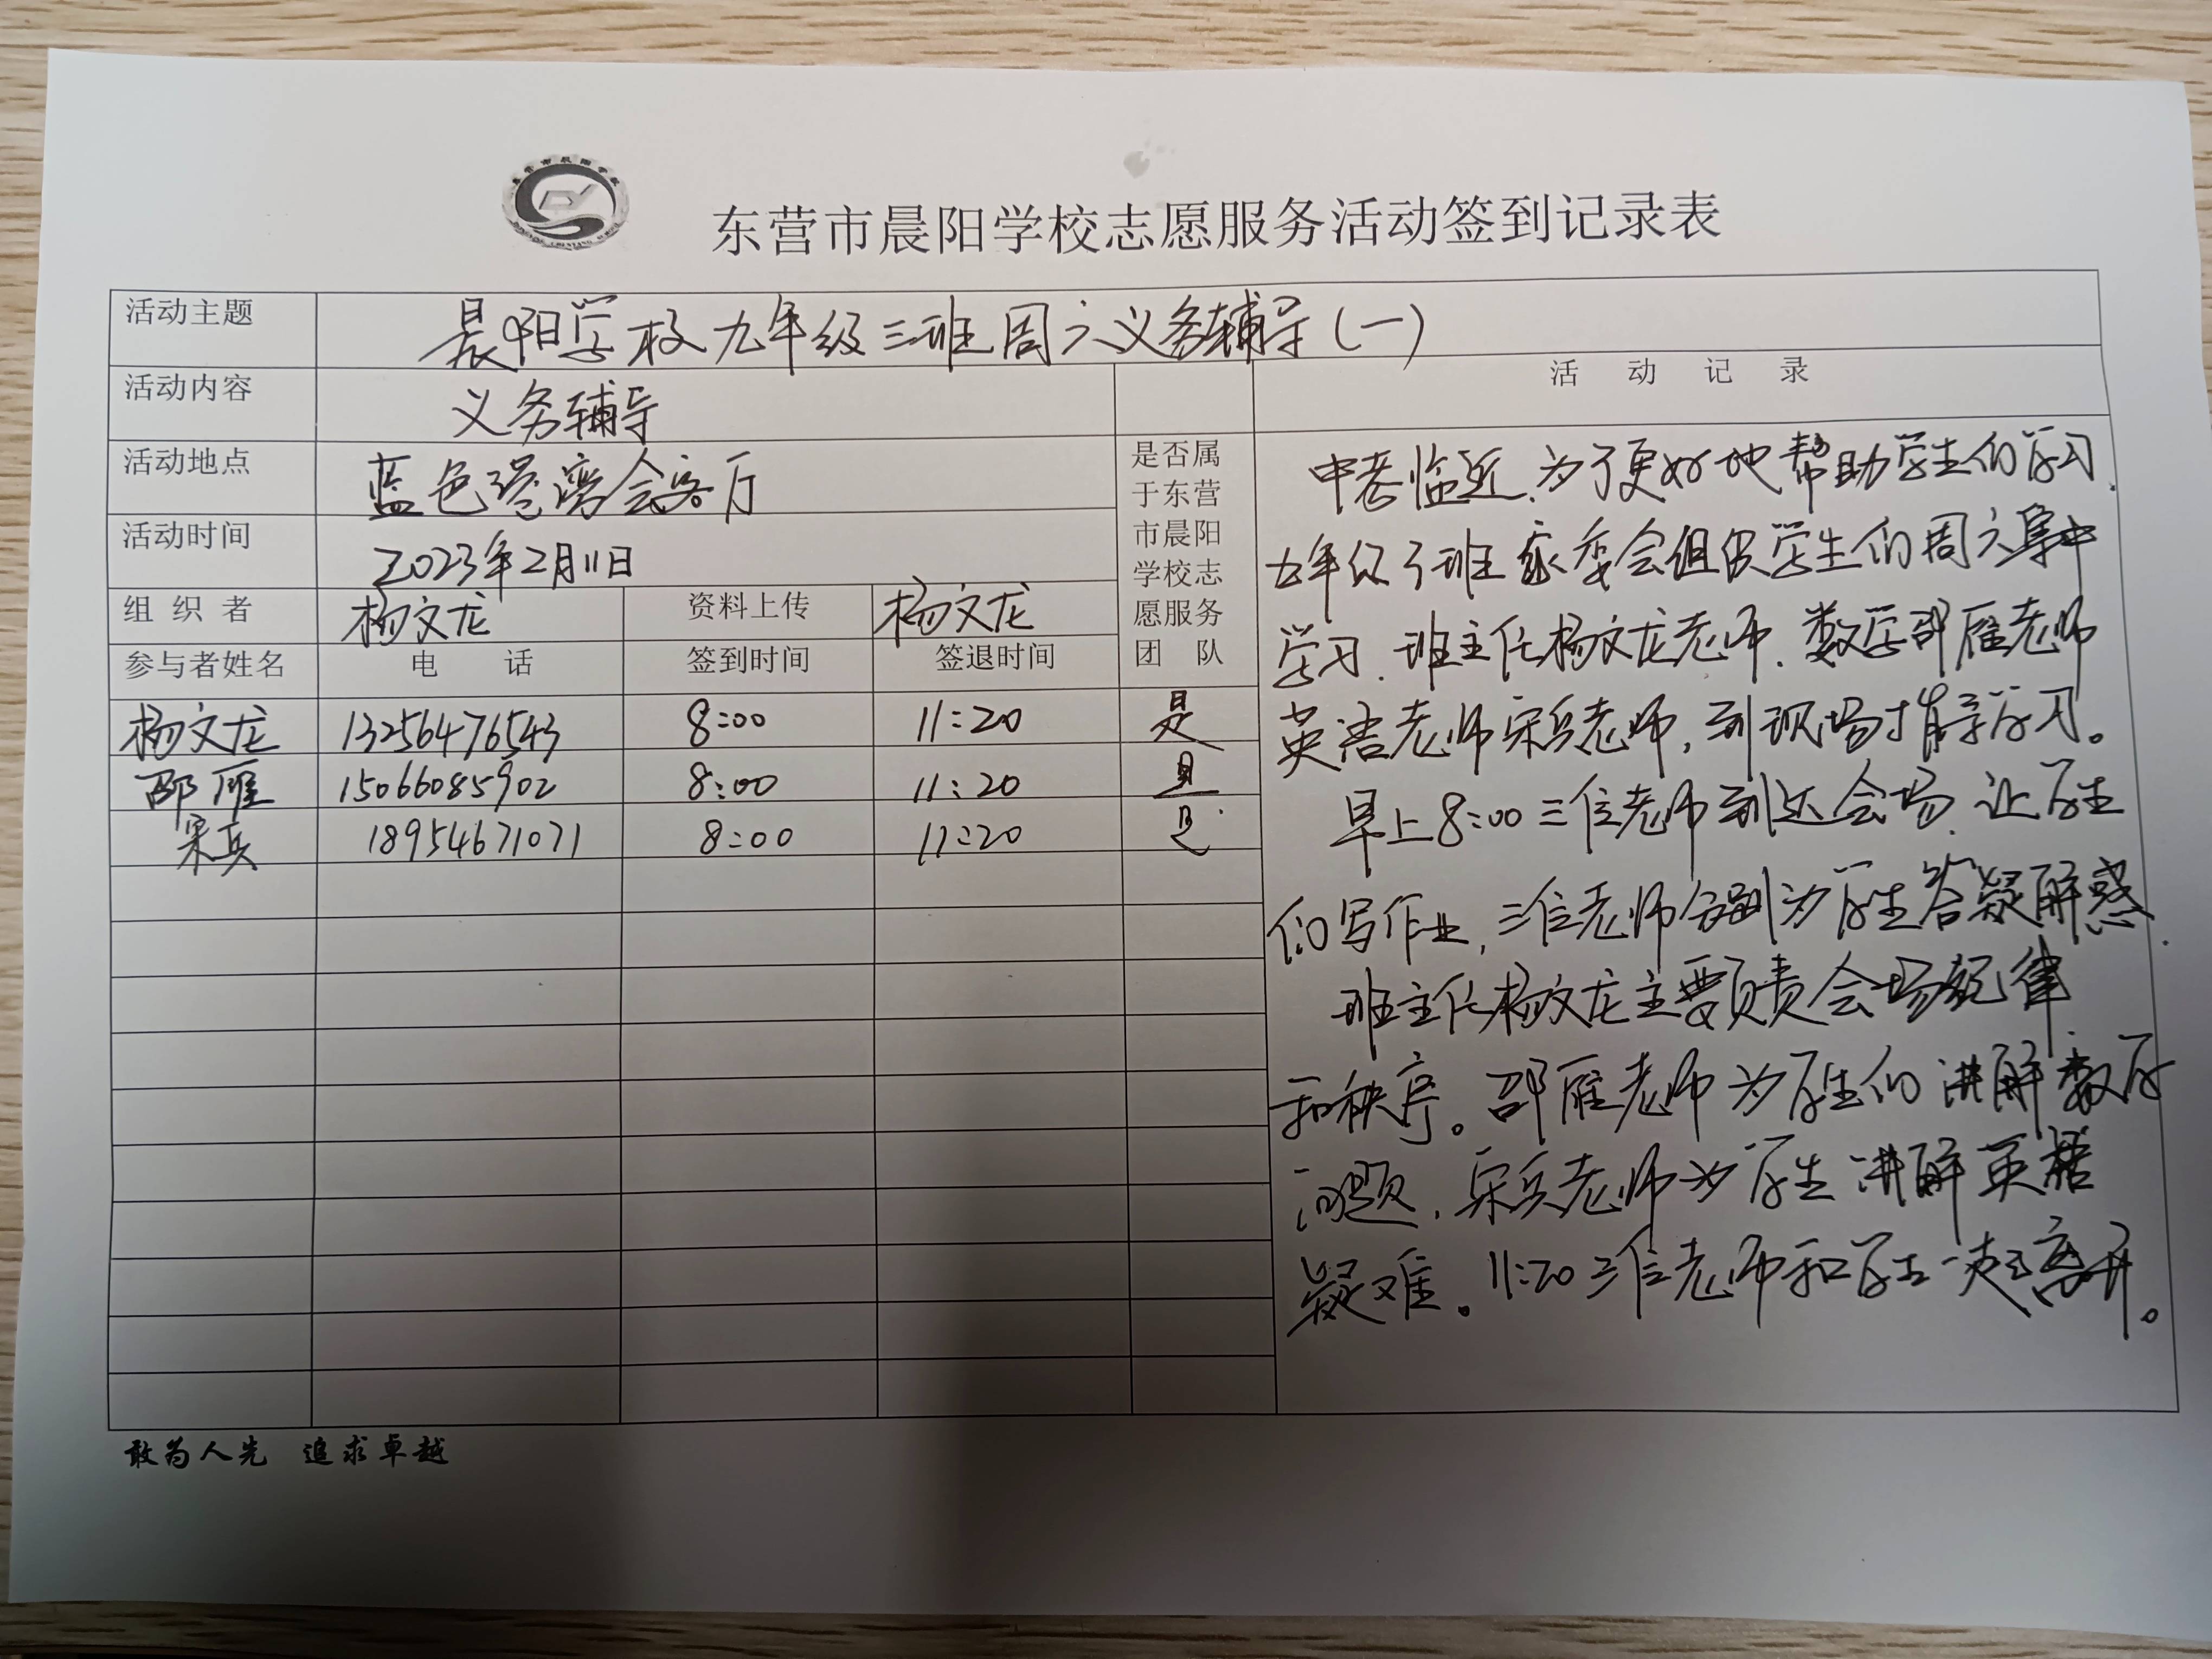 东营市晨阳学校志愿服务活动签到记录表
活动主题 晨阳学校九年级三班周六义务辅导(一)
活动内容 义务辅导
活动地点 蓝色港湾会客厅
活动时间 2023年2月11日
组织者 杨文龙 资料上传 杨文龙
参与者姓名 电话 签到时间 签退时间
是否属
于东营
市晨阳
学校志
愿服务
团队
杨文龙 13256476543 8:00 11:20 是
邵雁 15066085902 8:00 11:20 是
宋兵 18954671071 8:00 11:20 是
活动记录
中考临近、为了更好地帮助学生们学习.
九年级3班家委会组织学生们周六集中
学习.班主任杨文龙老师、数学邵雁老师
英语老师宋兵老师,到现场指导学习。
早上8:00三位老师到达会场.让学生
们写作业,三位老师分别为学生答疑解惑.
班主任杨文龙主要负责会场纪律
和秩序。邵雁老师为学生们讲解数学
问题,宋兵老师为学生讲解英语
疑难。11:20三位老师和学生一起离开。
敢为人先 追求卓越